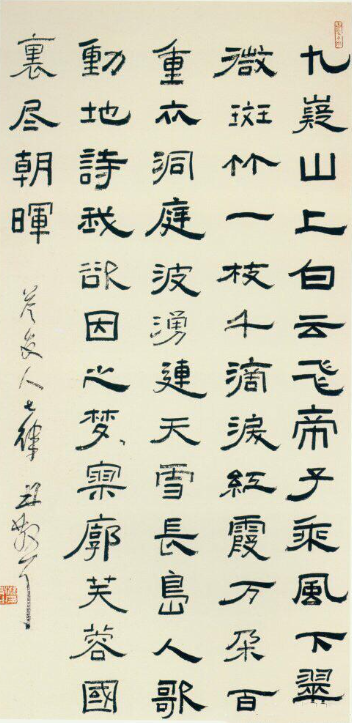 九嶷山上白云飞帝子乘風下翠
微斑竹一枝千滴淚紅霞万朶百
重衣洞庭波湧連天雪長島人歌
動地詩我欲因之梦寥廓芙蓉國
裏尽朝暉
答友人七律